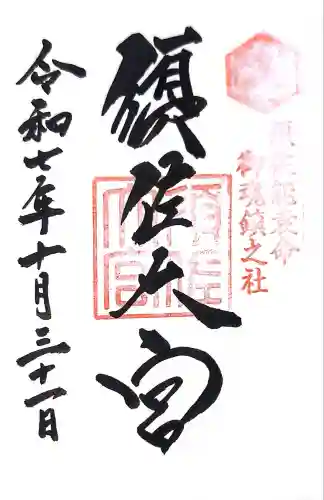 須佐能袁命
御魂鎮之社
須佐大宮
須佐大宮
令和七年十月三十一日